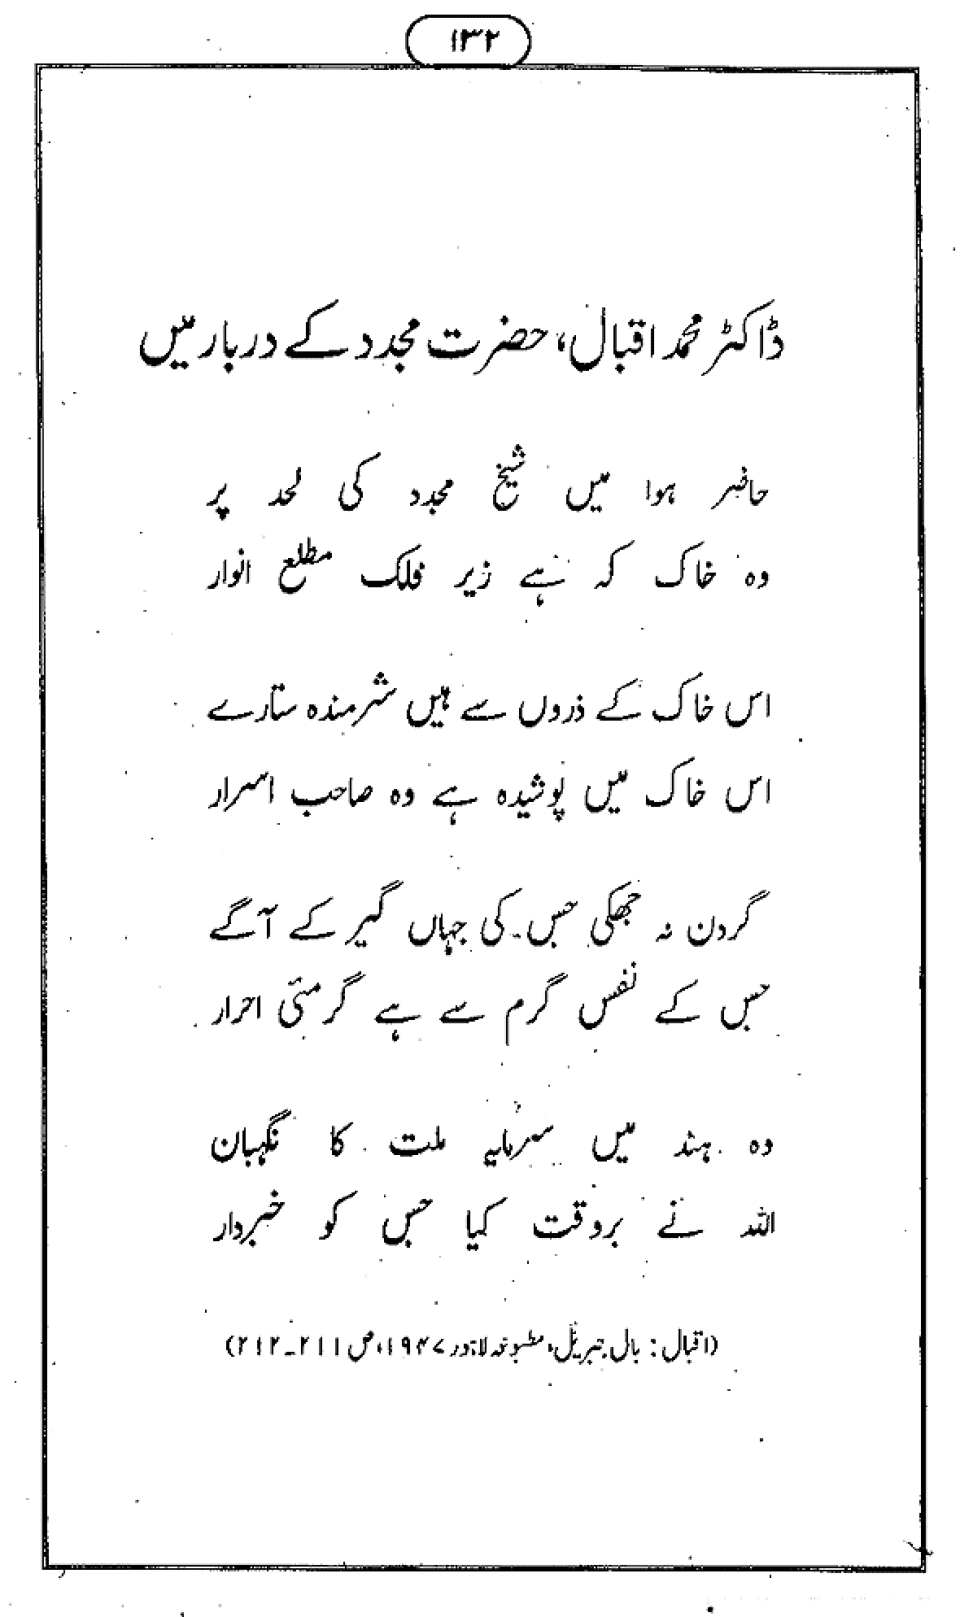 ۱۳۲
ڈاکٹر محمد اقبال، حضرت مجدد کے دربار میں
حاضر ہوا میں شیخ مجدد کی لحد پر
وہ خاک کہ ہے زیر فلک مطلع انوار
اس خاک کے ذروں سے ہیں شرمندہ ستارے
اس خاک میں پوشیدہ ہے وہ صاحب اسرار
گردن نہ جھکی جس کی جہاں گیر کے آگے
جس کے نفس گرم سے ہے گرمئی احرار
وہ ہند میں سرمایہ ملت کا نگہبان
اللہ نے بروقت کیا جس کو خبردار
(اقبال: بال جبریل، مطبوعہ لاہور ۱۹۴۷، ص ۲۱۱۔۲۱۲)